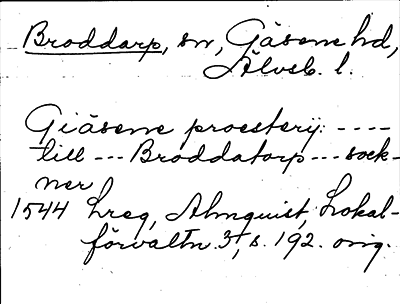 Broddarp, sn, Gäsene hd,
Älvsb. l.
Giäsene proesterij ----
till --- Broddatorp --- sock-
ner
1544 Lreg, Almquist, Lokal-
förvaltn. 3, s. 192. orig.